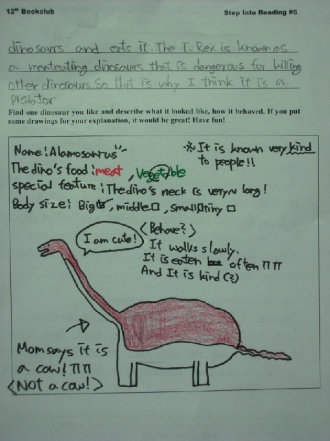 12th Bookclub Step Into Reading #5
dinosaurs and eats it. The T.Rex is known as
a meateating dinosaurs that is dangerous for killing
other dinosaurs So that is why I think it is a
Pretator
Find one dinosaur you like and describe what it looked like, how it behaved. If you put
some drawings for your explanation, it would be great! Have fun!
Name: Alamosaurus
The dino's food: meat, Vegetable
special feature: The dino's neck is very long!
Body size: Big, middle□, small□tiny □
* It is known very kind
to people!!
I am cute!
<Behave?>
It walks slowly.
It is eaten often ㅠㅠ
And It is kind (?)
Mom says it is
a cow! ㅠㅠ
<NOT a cow!>